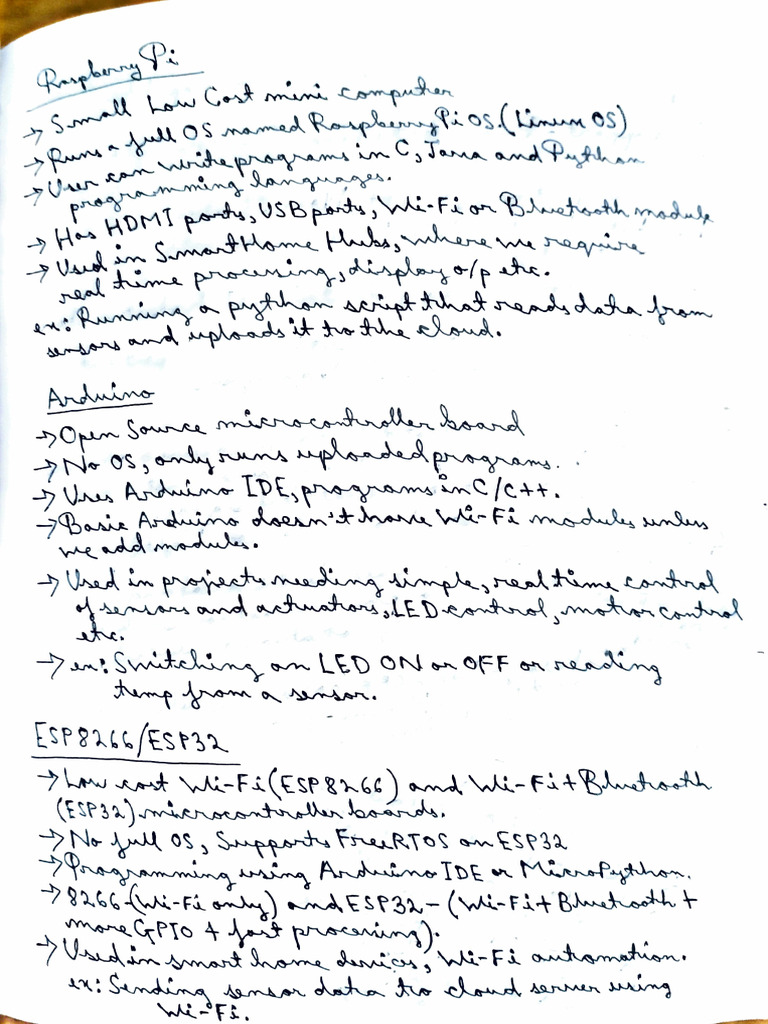 Raspberry Pi
→ Small Low Cost mini computer
→ Runs a full OS named Raspberry Pi OS. (Linux OS)
→ User can write programs in C, Java and Python
programming languages.
→ Has HDMI ports, USB ports, Wi-Fi or Bluetooth module
→ Used in Smart Home Hubs, where we require
real time processing, display o/p etc.
ex: Running a python script that reads data from
sensors and uploads it to the cloud.
Arduino
→ Open Source microcontroller board
→ No OS, only runs uploaded programs.
→ Uses Arduino IDE, programs in C/C++.
→ Basic Arduino doesn't have Wi-Fi modules unless
we add modules.
→ Used in projects needing simple, real time control
of sensors and actuators, LED control, motor control
etc.
→ ex: Switching an LED ON or OFF or reading
temp from a sensor.
ESP8266/ESP32
→ Low cost Wi-Fi (ESP8266) and Wi-Fi + Bluetooth
(ESP32) microcontroller boards.
→ No full OS, Supports FreeRTOS on ESP32
→ Programming using Arduino IDE or MicroPython.
→ 8266-(Wi-Fi only) and ESP32-(Wi-Fi + Bluetooth +
more GPIO & fast processing).
→ Used in smart home devices, Wi-Fi automation.
ex: Sending sensor data to cloud server using
Wi-Fi.